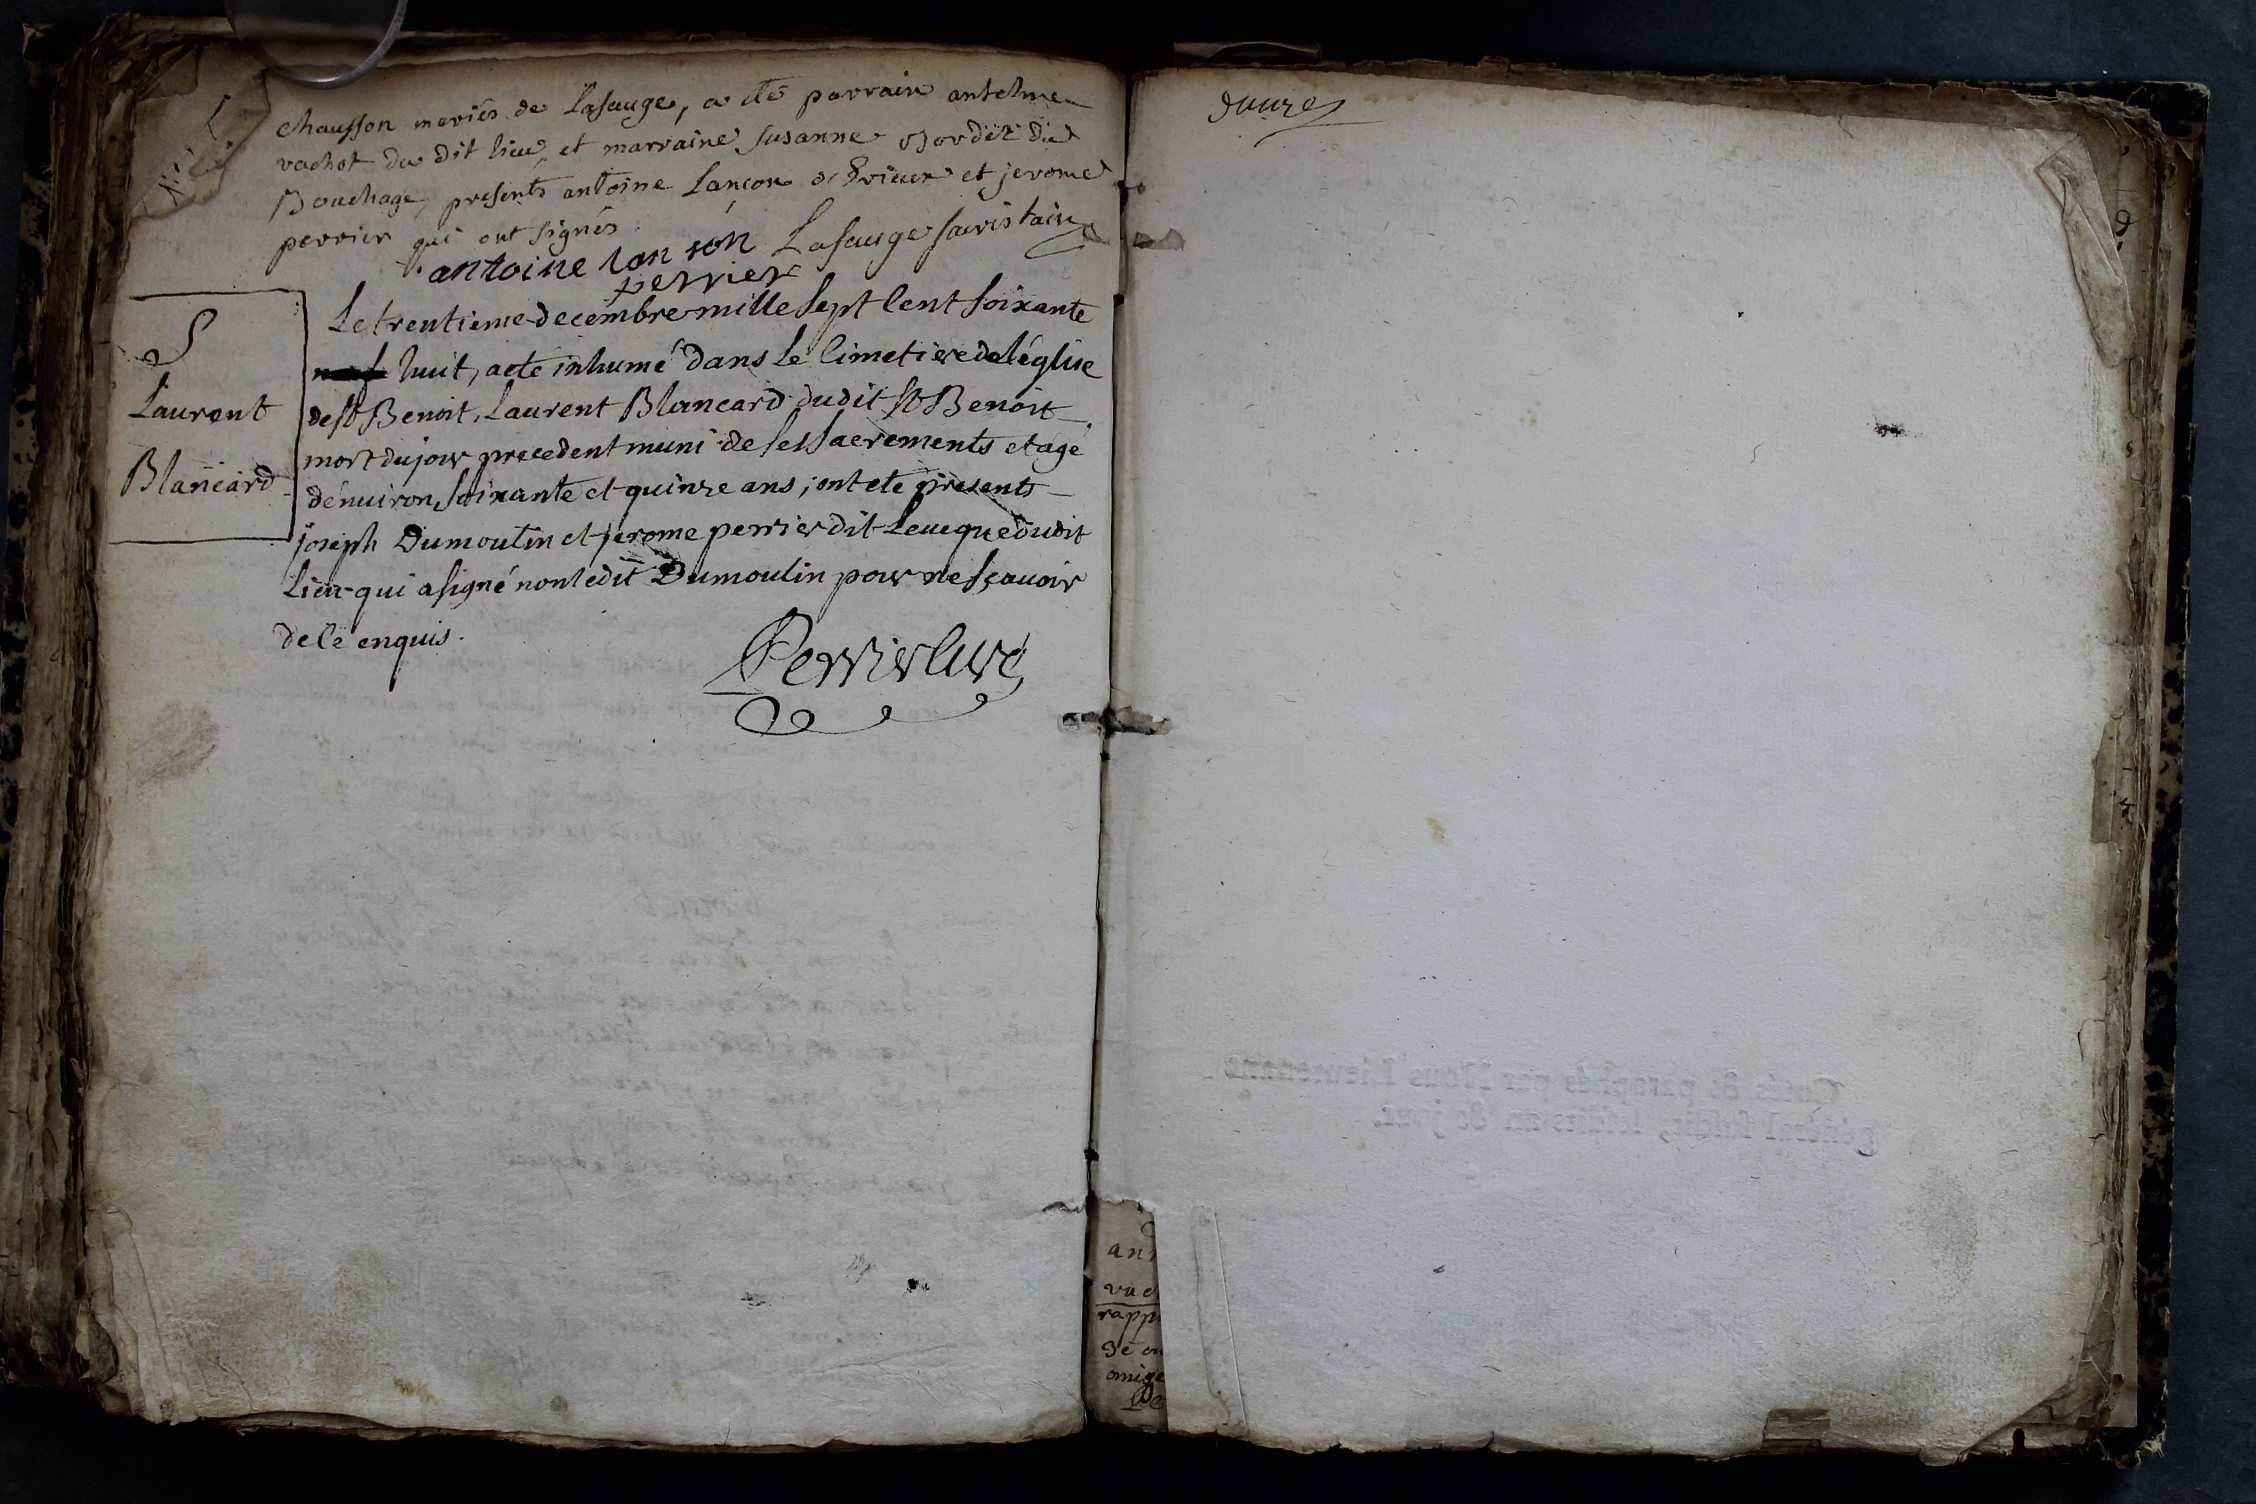 chausson mariés de Lasauge, a été parrain antelme
vachot du dit lieu, et marraine susanne Bordet du
Bouchage, presents antoine Lançon d'Evieux et jerome
perrier qui ont signés.
antoine lanson Lasauge sacristain
perrier
S
Laurent
Blancard
Le trentieme decembre mille sept cent soixante
huit, a eté inhumé dans le Cimetiere de léglise
de st Benoit, Laurent Blancard dudit st Benoit
mort du jour precedent muni de ses sacrements et agé
dénuiron soixante et quinze ans; ont eté presents
joseph Dumoulin et jerome perrier dit Leueque dudit
Lieu qui a signé non ledit Dumoulin pour ne sçauoir
de ce enquis.
Perrier Curé
douze
Cotés & paraphés par Nous Lieutenant
général susdit, lesdits an & jour.
ann
vac
rapp
de